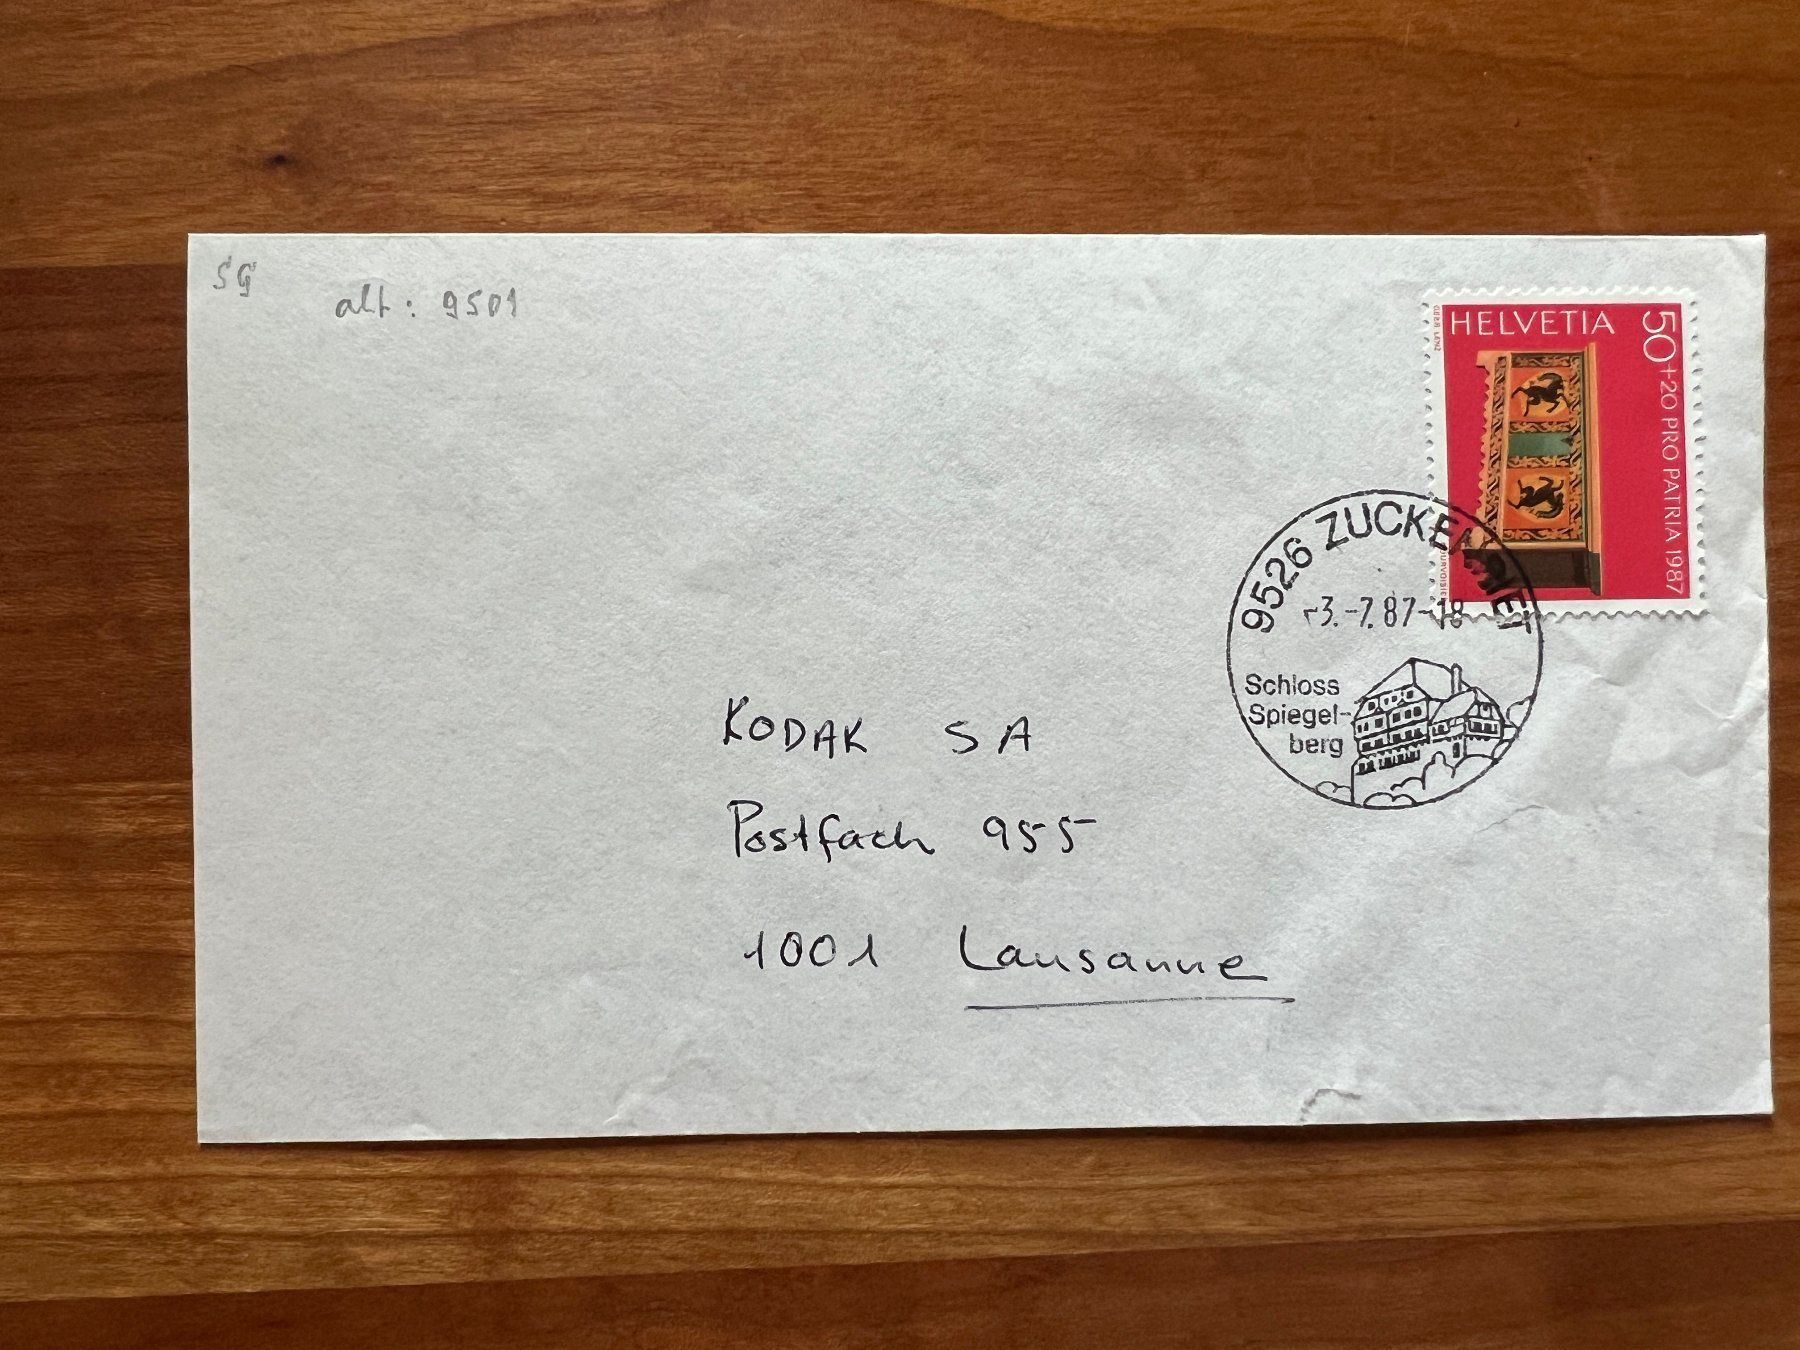 SG
alt: 9501
HELVETIA
50+20 PRO PATRIA 1987
9526 ZUCKENRIET
-3.-7.87-18
Schloss
Spiegel-
berg
KODAK SA
Postfach 955
1001 Lausanne